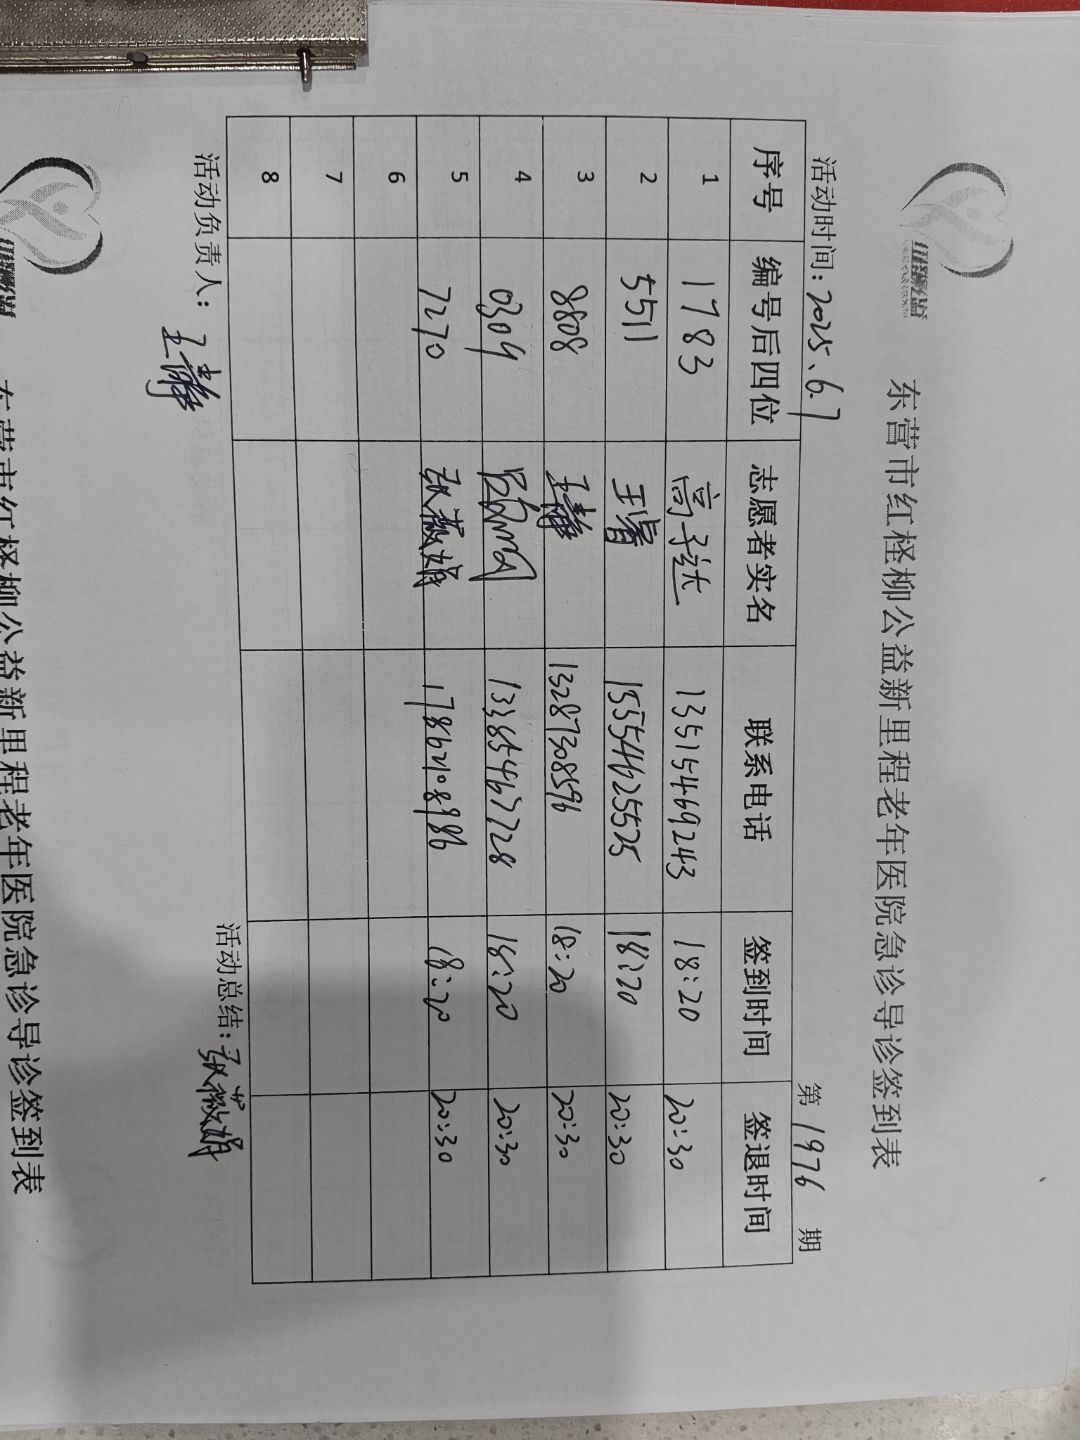 东营市红柽柳公益新里程老年医院急诊导诊签到表
活动时间：2025、6.7 第1976期
序号 编号后四位 志愿者实名 联系电话 签到时间 签退时间
1 1783 高子达 13515469243 18:20 20:30
2 5511 王睿 15554625525 18:20 20:30
3 8808 王静 13287308596 18:20 20:30
4 0309 13385467728 18:20 20:30
5 7270 张薇娟 17862108986 18:20 20:30
6
7
8
活动负责人：王静 活动总结：张薇娟
东营市红柽柳公益新里程老年医院急诊导诊签到表